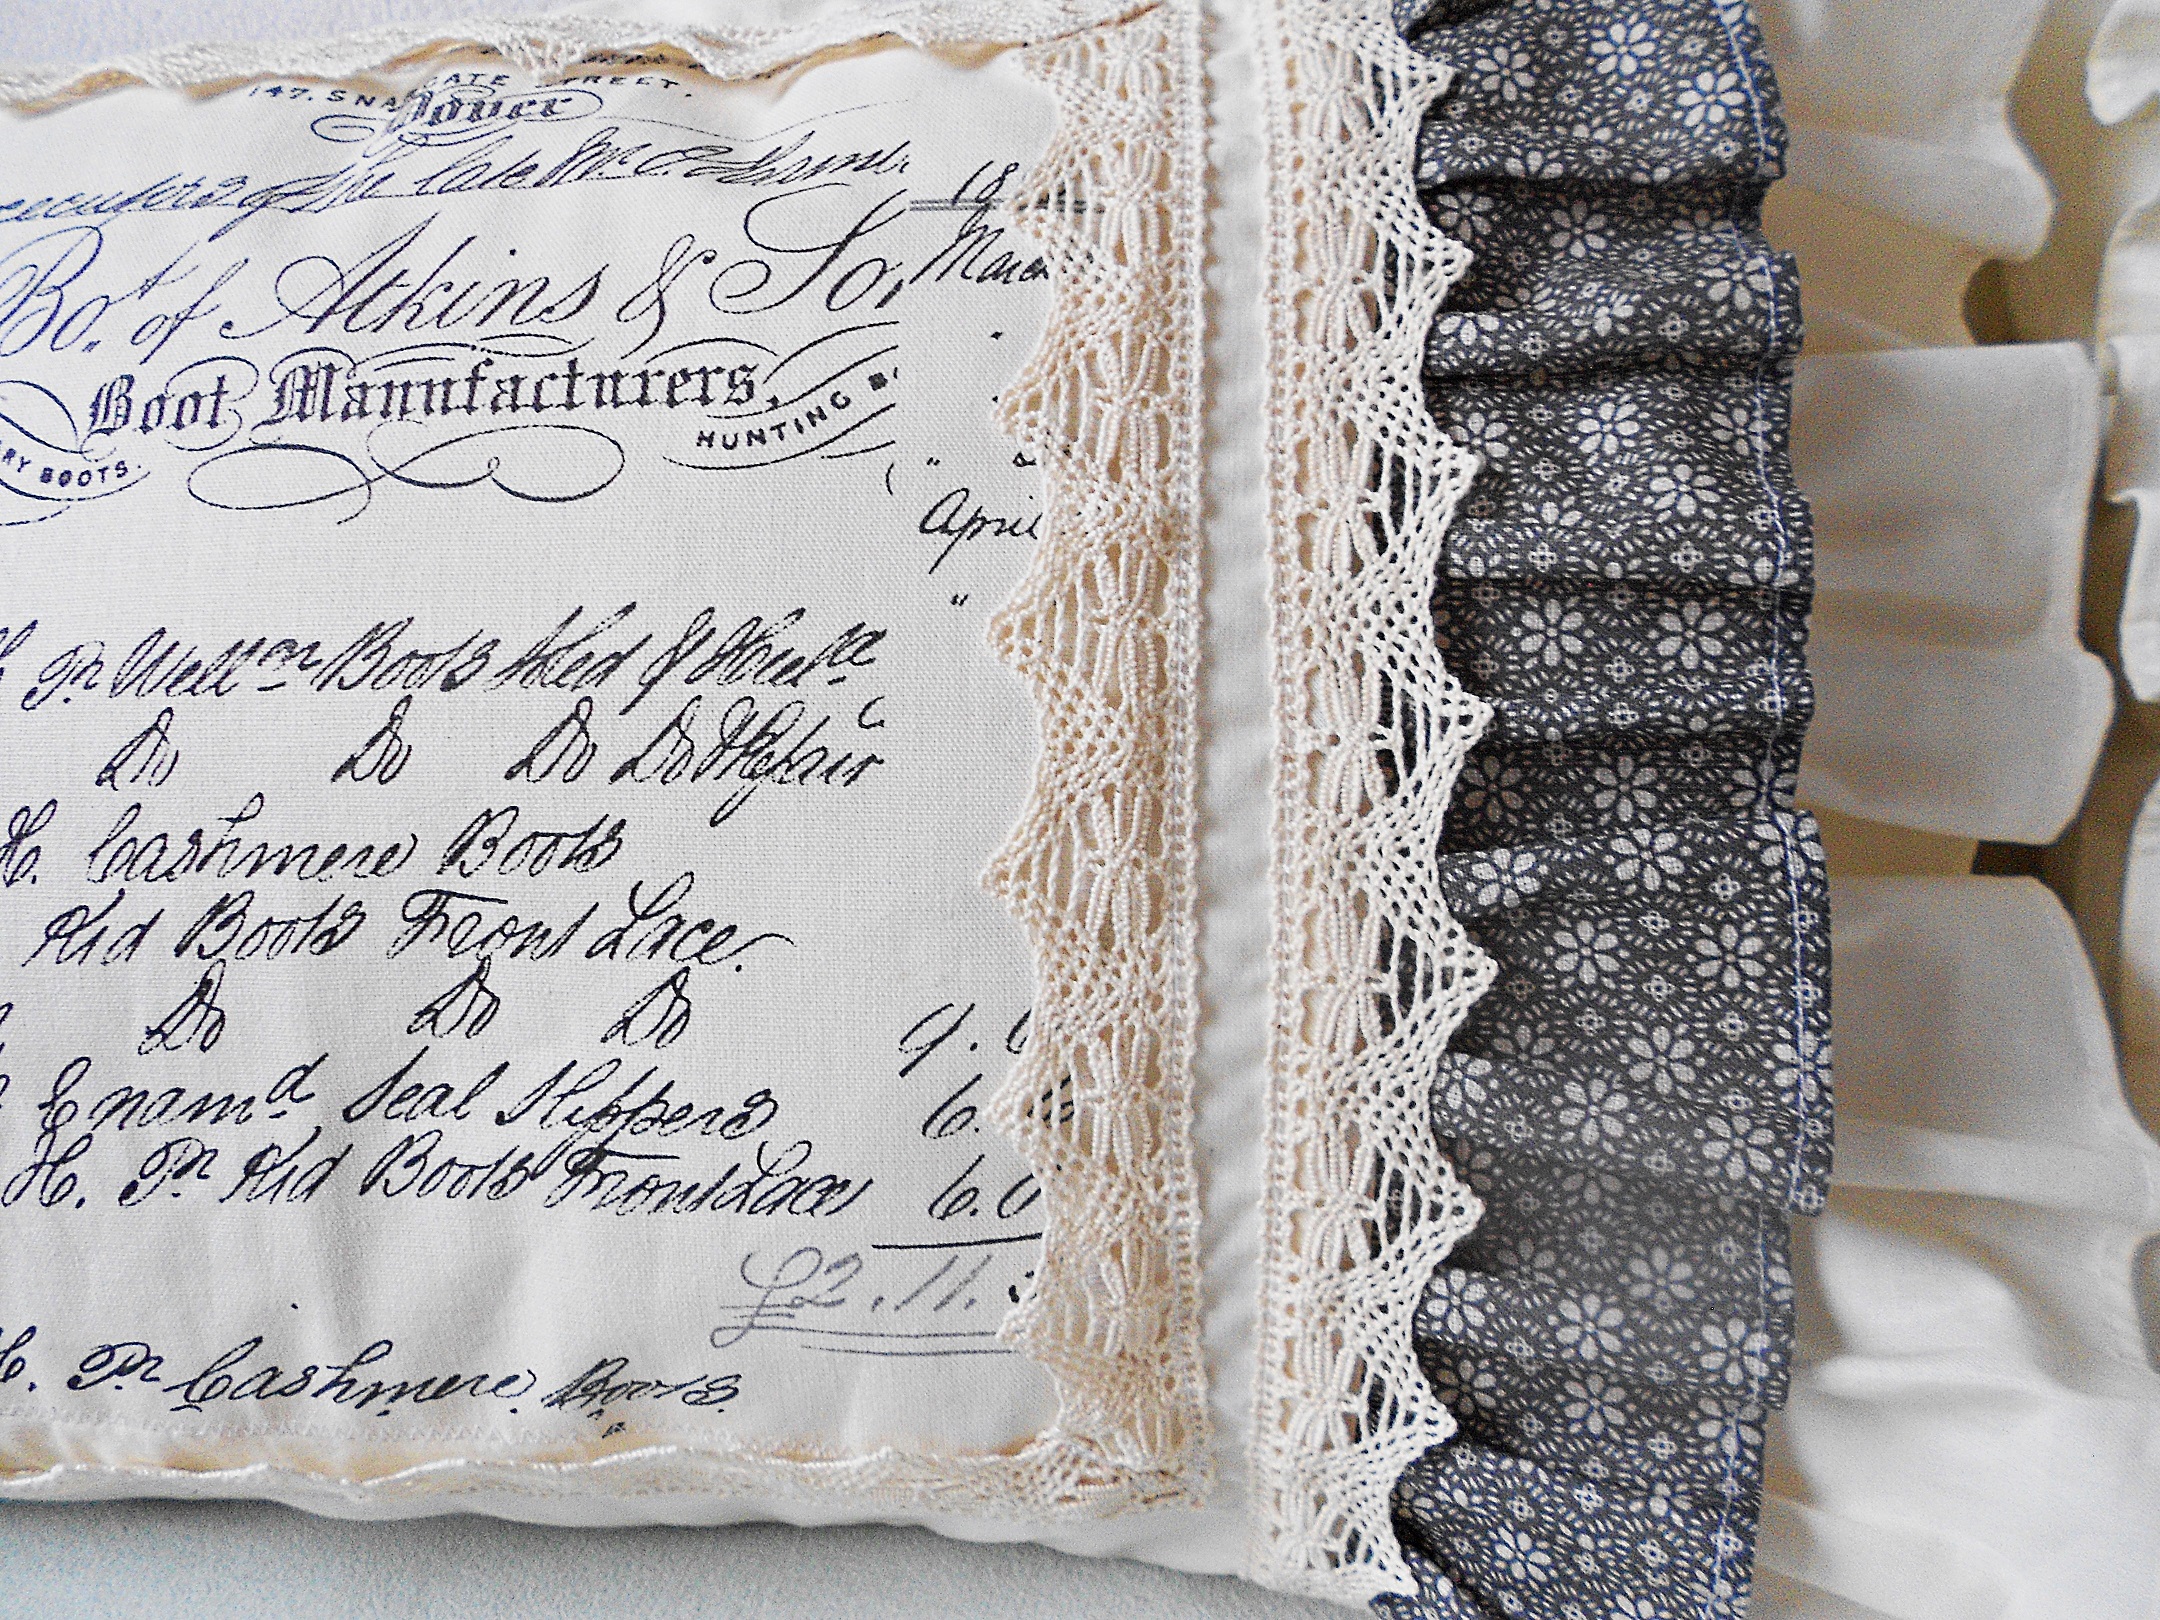 147. SNA GATE STREET.
Dover
of the late Mr 18
Bo.t of Atkins & So,
March
Boot Manufacturers,
RY BOOTS.
HUNTING B
"
April
"
Pr Wellon Boots Soled & Heeld
Do Do Do Do Repair
H. Cashmere Boots
Kid Boots Front Lace.
Do Do Do 9.
Enamd Seal Slippers 6.
H. Pr Kid Boots Front Lace 6.0
£2.11.
H. Pr Cashmere Boots.